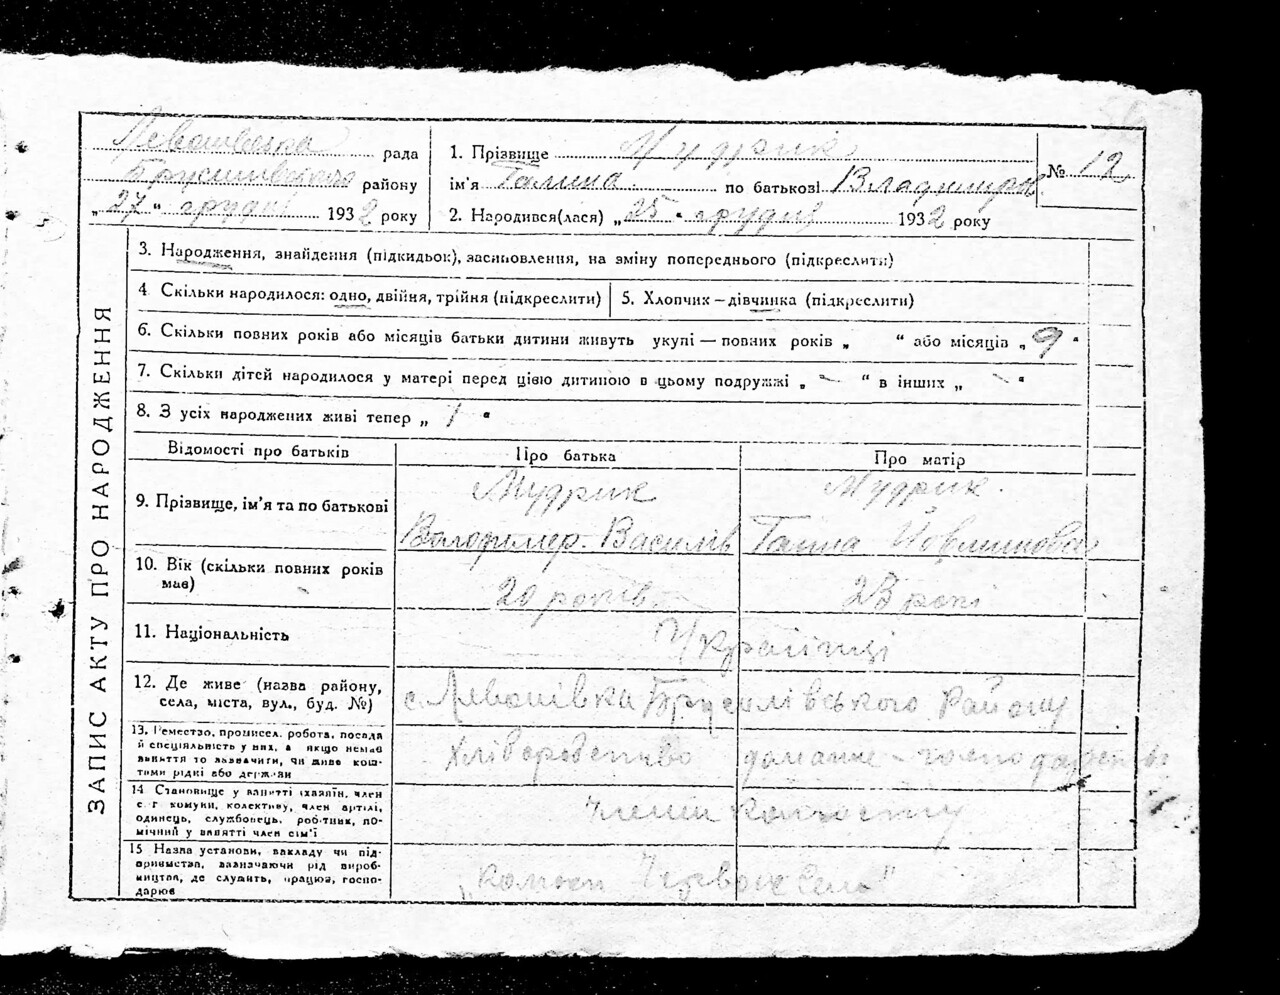 Левашівська рада
Брусилівського району
„27“ грудні 1932 року
1. Прізвище Мудрик
ім'я Галина по батькові Владимирів
2. Народився(лася) „25“ грудні 1932 року
№ 12
ЗАПИС АКТУ ПРО НАРОДЖЕННЯ
3. Народження, знайдення (підкидьок), засиновлення, на зміну попереднього (підкреслити)
4 Скільки народилося: одно, двійня, трійня (підкреслити)
5. Хлопчик – дівчинка (підкреслити)
6. Скільки повних років або місяців батьки дитини живуть укупі — повних років „ “ або місяців „9“
7. Скільки дітей народилося у матері перед цією дитиною в цьому подружжі „ — “ в інших „ — “
8. З усіх народжених живі тепер „ 1 “
Відомості про батьків
Про батька
Про матір
9. Прізвище, ім'я та по батькові
Мудрик
Володимер Василів
Мудрик
Ганна
10. Вік (скільки повних років
мав)
20 років
23 рокі
11. Національність
Українці
12. Де живе (назва району,
села, міста, вул., буд. №)
с. Левашівка Брусилівського району
13. Ремество, промисел, робота, посада
й спеціяльність у них, а якщо немає
заняття то зазначити, чи живе кош-
тами рідні або держави
Хліборобство
домашнє – господарство
14 Становище у занятті (хазяїн, член
с. г комуни, колективу, член артілі,
одинець, службовець, робітник, по-
мічний у занятті член сім'ї
Члени колгоспу
15 Назва установи, закладу чи під-
приємства, зазначаючи рід вироб-
ництва, де служить, працює, госпо-
дарює